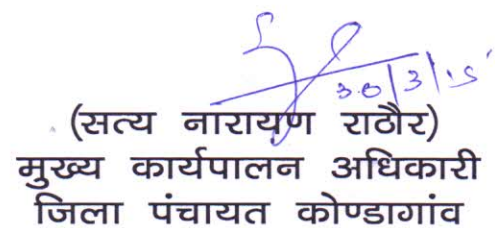 30/3/15
(सत्य नारायण राठौर)
मुख्य कार्यपालन अधिकारी
जिला पंचायत कोण्डागांव